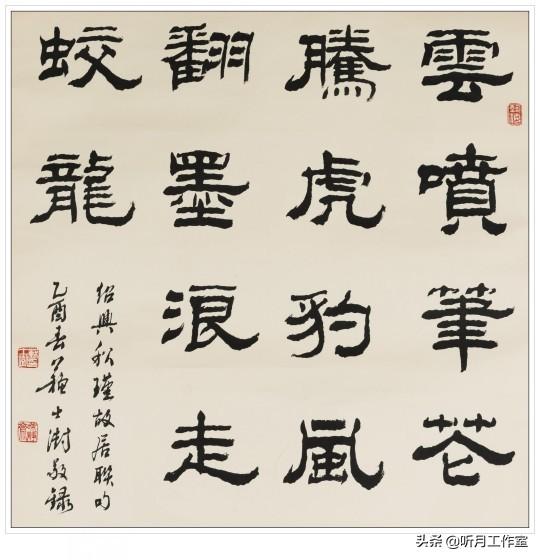 雲噴筆花
騰虎豹風
翻墨浪走
蛟龍
紹興秋瑾故居聯句
乙酉春蘇士澍敬錄
头条 @听月工作室